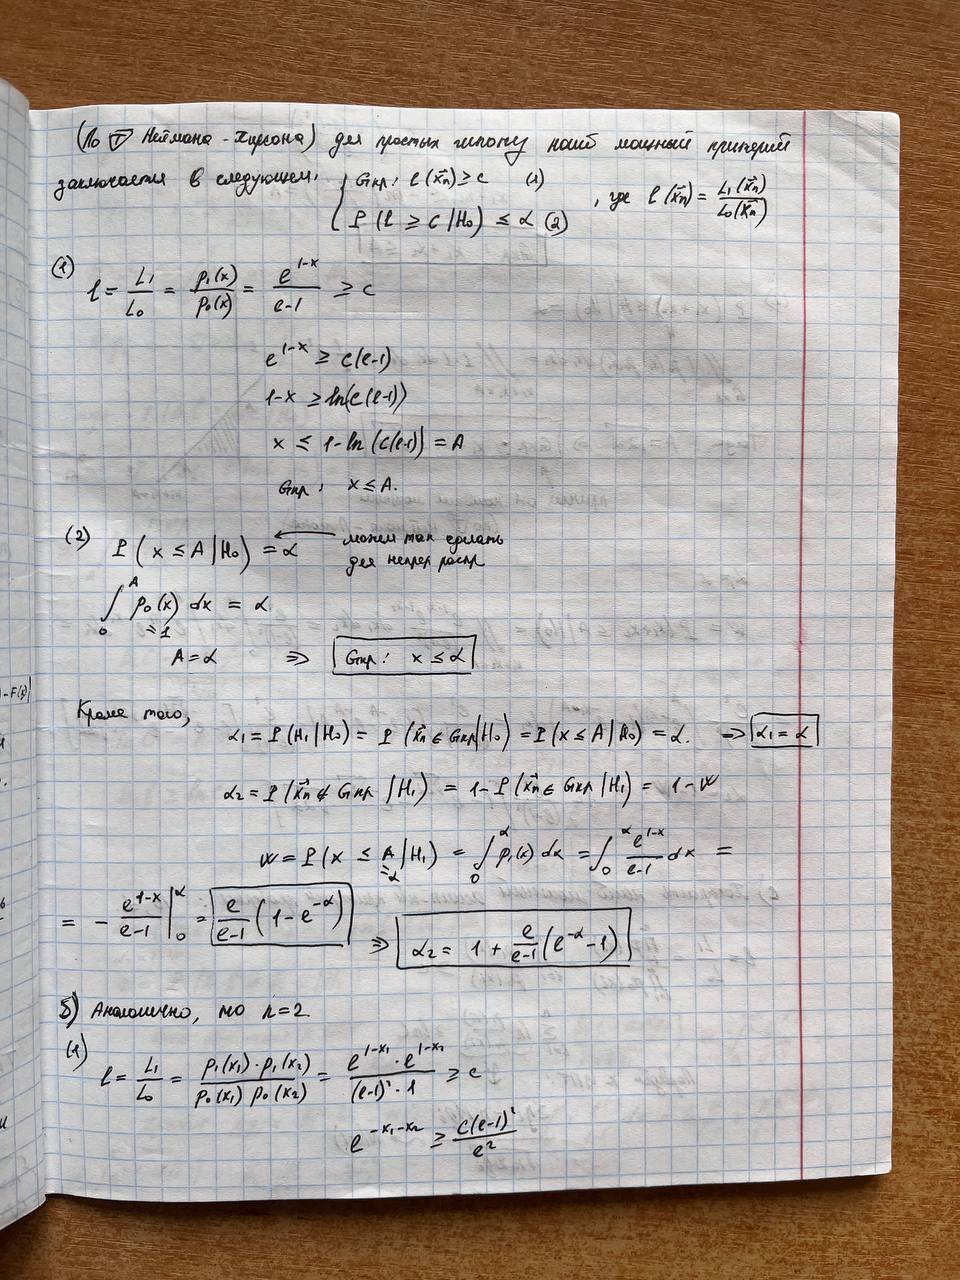 (По Ⓣ Неймана-Пирсона) для простых гипотез наиб мощный критерий
заключается в следующем: { Gкр: l(x⃗n) ≥ c (1) , где l(x⃗n) = L₁(x⃗n)/L₀(x⃗n)
P(l ≥ c | H₀) ≤ α (2)
(1) l = L₁/L₀ = p₁(x)/p₀(x) = e^(1-x)/(e-1) ≥ c
e^(1-x) ≥ c(e-1)
1-x ≥ ln(c(e-1))
x ≤ 1-ln(c(e-1)) = A
Gкр: x ≤ A.
(2) P(x ≤ A | H₀) = α ← можем так сделать
для непрер распр
∫₀^A p₀(x) dx = α
=1
A = α ⇒ Gкр: x ≤ α
Кроме того,
α₁ = P(H₁|H₀) = P(x⃗n ∈ Gкр|H₀) = P(x ≤ A|H₀) = α. ⇒ α₁ = α
α₂ = P(x⃗n ∉ Gкр | H₁) = 1-P(x⃗n ∈ Gкр | H₁) = 1-W
W = P(x ≤ A | H₁) = ∫₀^α p₁(x) dx = ∫₀^α e^(1-x)/(e-1) dx =
=α
= - e^(1-x)/(e-1) |₀^α = e/(e-1) (1-e^(-α)) ⇒ α₂ = 1 + e/(e-1) (e^(-α)-1)
б) Аналогично, но n=2
(1)
l = L₁/L₀ = p₁(x₁)·p₁(x₂)/p₀(x₁) p₀(x₂) = e^(1-x₁)·e^(1-x₂)/(e-1)²·1 ≥ c
e^(-x₁-x₂) ≥ c(e-1)²/e²